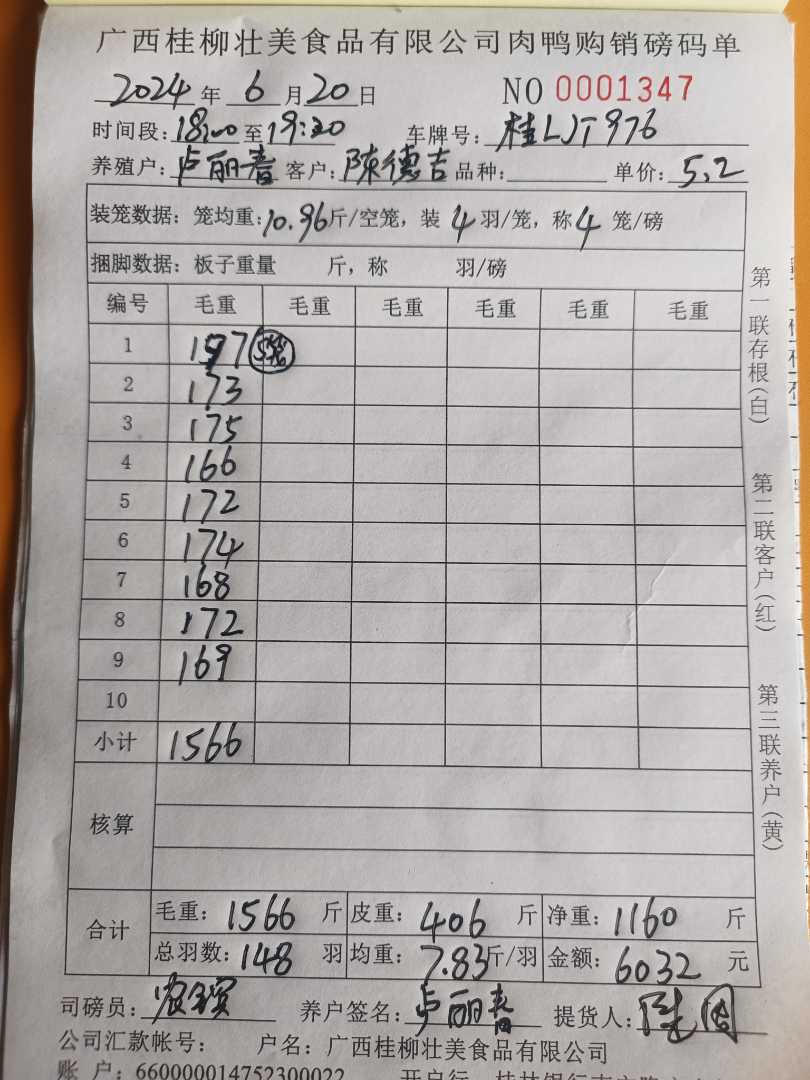 广西桂柳壮美食品有限公司肉鸭购销磅码单
2024年6月20日 NO 0001347
时间段:18:00至19:20 车牌号:桂LJT976
养殖户:卢丽春 客户:陳德吉 品种: 单价:5.2
装笼数据:笼均重:10.96斤/空笼,装4羽/笼,称4笼/磅
捆脚数据:板子重量 斤,称 羽/磅
编号 毛重 毛重 毛重 毛重 毛重 毛重
1 197 5笼
2 173
3 175
4 166
5 172
6 174
7 168
8 172
9 169
10
小计 1566
核算
合计 毛重:1566斤 皮重:406斤 净重:1160斤
总羽数:148羽 均重:7.83斤/羽 金额:6032元
司磅员: 养户签名:卢丽春 提货人:
公司汇款帐号: 户名:广西桂柳壮美食品有限公司
账 户:660000014752300022
第一联存根(白)
第二联客户(红)
第三联养户(黄)